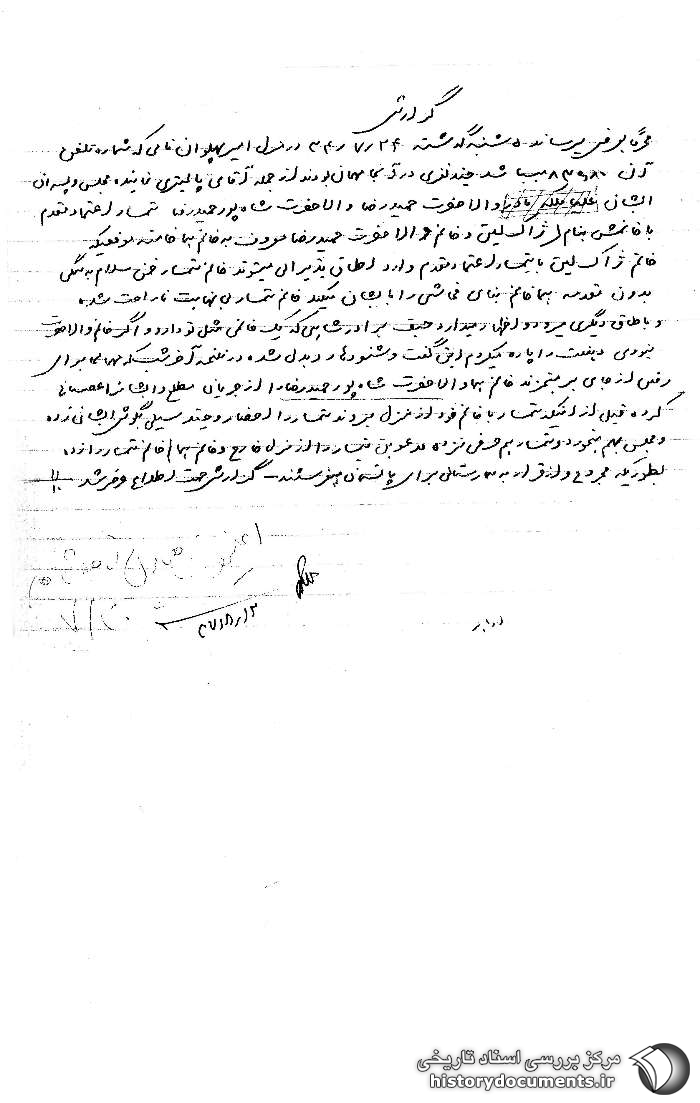 گزارش
محترماً بعرض میرساند ۵ شنبه گذشته ۳۴/۷/۲۴ در منزل امیر پهلوان نامی که شماره تلفن
آن میباشد چند نفری در آنجا مهمان بودند از جمله آقای پالیزی نماینده مجلس و پسران
ایشان والاحضرت حمیدرضا والاحضرت شاهپور حمیدرضا تیمسار اعتماد مقدم
با خانمش بنام ژاکلین و خانم والاحضرت حمیدرضا موقعیکه
خانم ژاکلین با تیمسار اعتماد مقدم وارد اطاق پذیرائی میشوند خانم تیمسار ضمن سلام به همگی
بدون مقدمه هما خانم بنای فحاشی را بایشان میکند خانم تیمسار بی نهایت ناراحت شده
و باطاق دیگری میرود و اظهار میدارد حیف برادر شاه که یک خانمی مثل تو دارد و اگر خانم والاحضرت
نبودی دهنت را پاره میکردم این گفت و شنودها رد و بدل شده در نتیجه آخر شب که مهمانها برای
رفتن از جای برمیخیزند خانم هما والاحضرت شاهپور حمیدرضا را از جریان مطلع و ایشانرا عصبانی
کرده قبل از اینکه تیمسار با خانم خود از منزل بروند تیمسار را احضار و چند سیلی بگوش ایشان زده
و مجلس بهم میخورد و تیمسار هم حرفی نزده مدعوین تیمسار را از منزل خارج و خانم هما خانم تیمسار را زده
بطوریکه مجروح و از قرار به بیمارستانی برای پانسمان میفرستند - گزارش جهت اطلاع عرض شد
مرکز بررسی اسناد تاریخی
historydocuments.ir